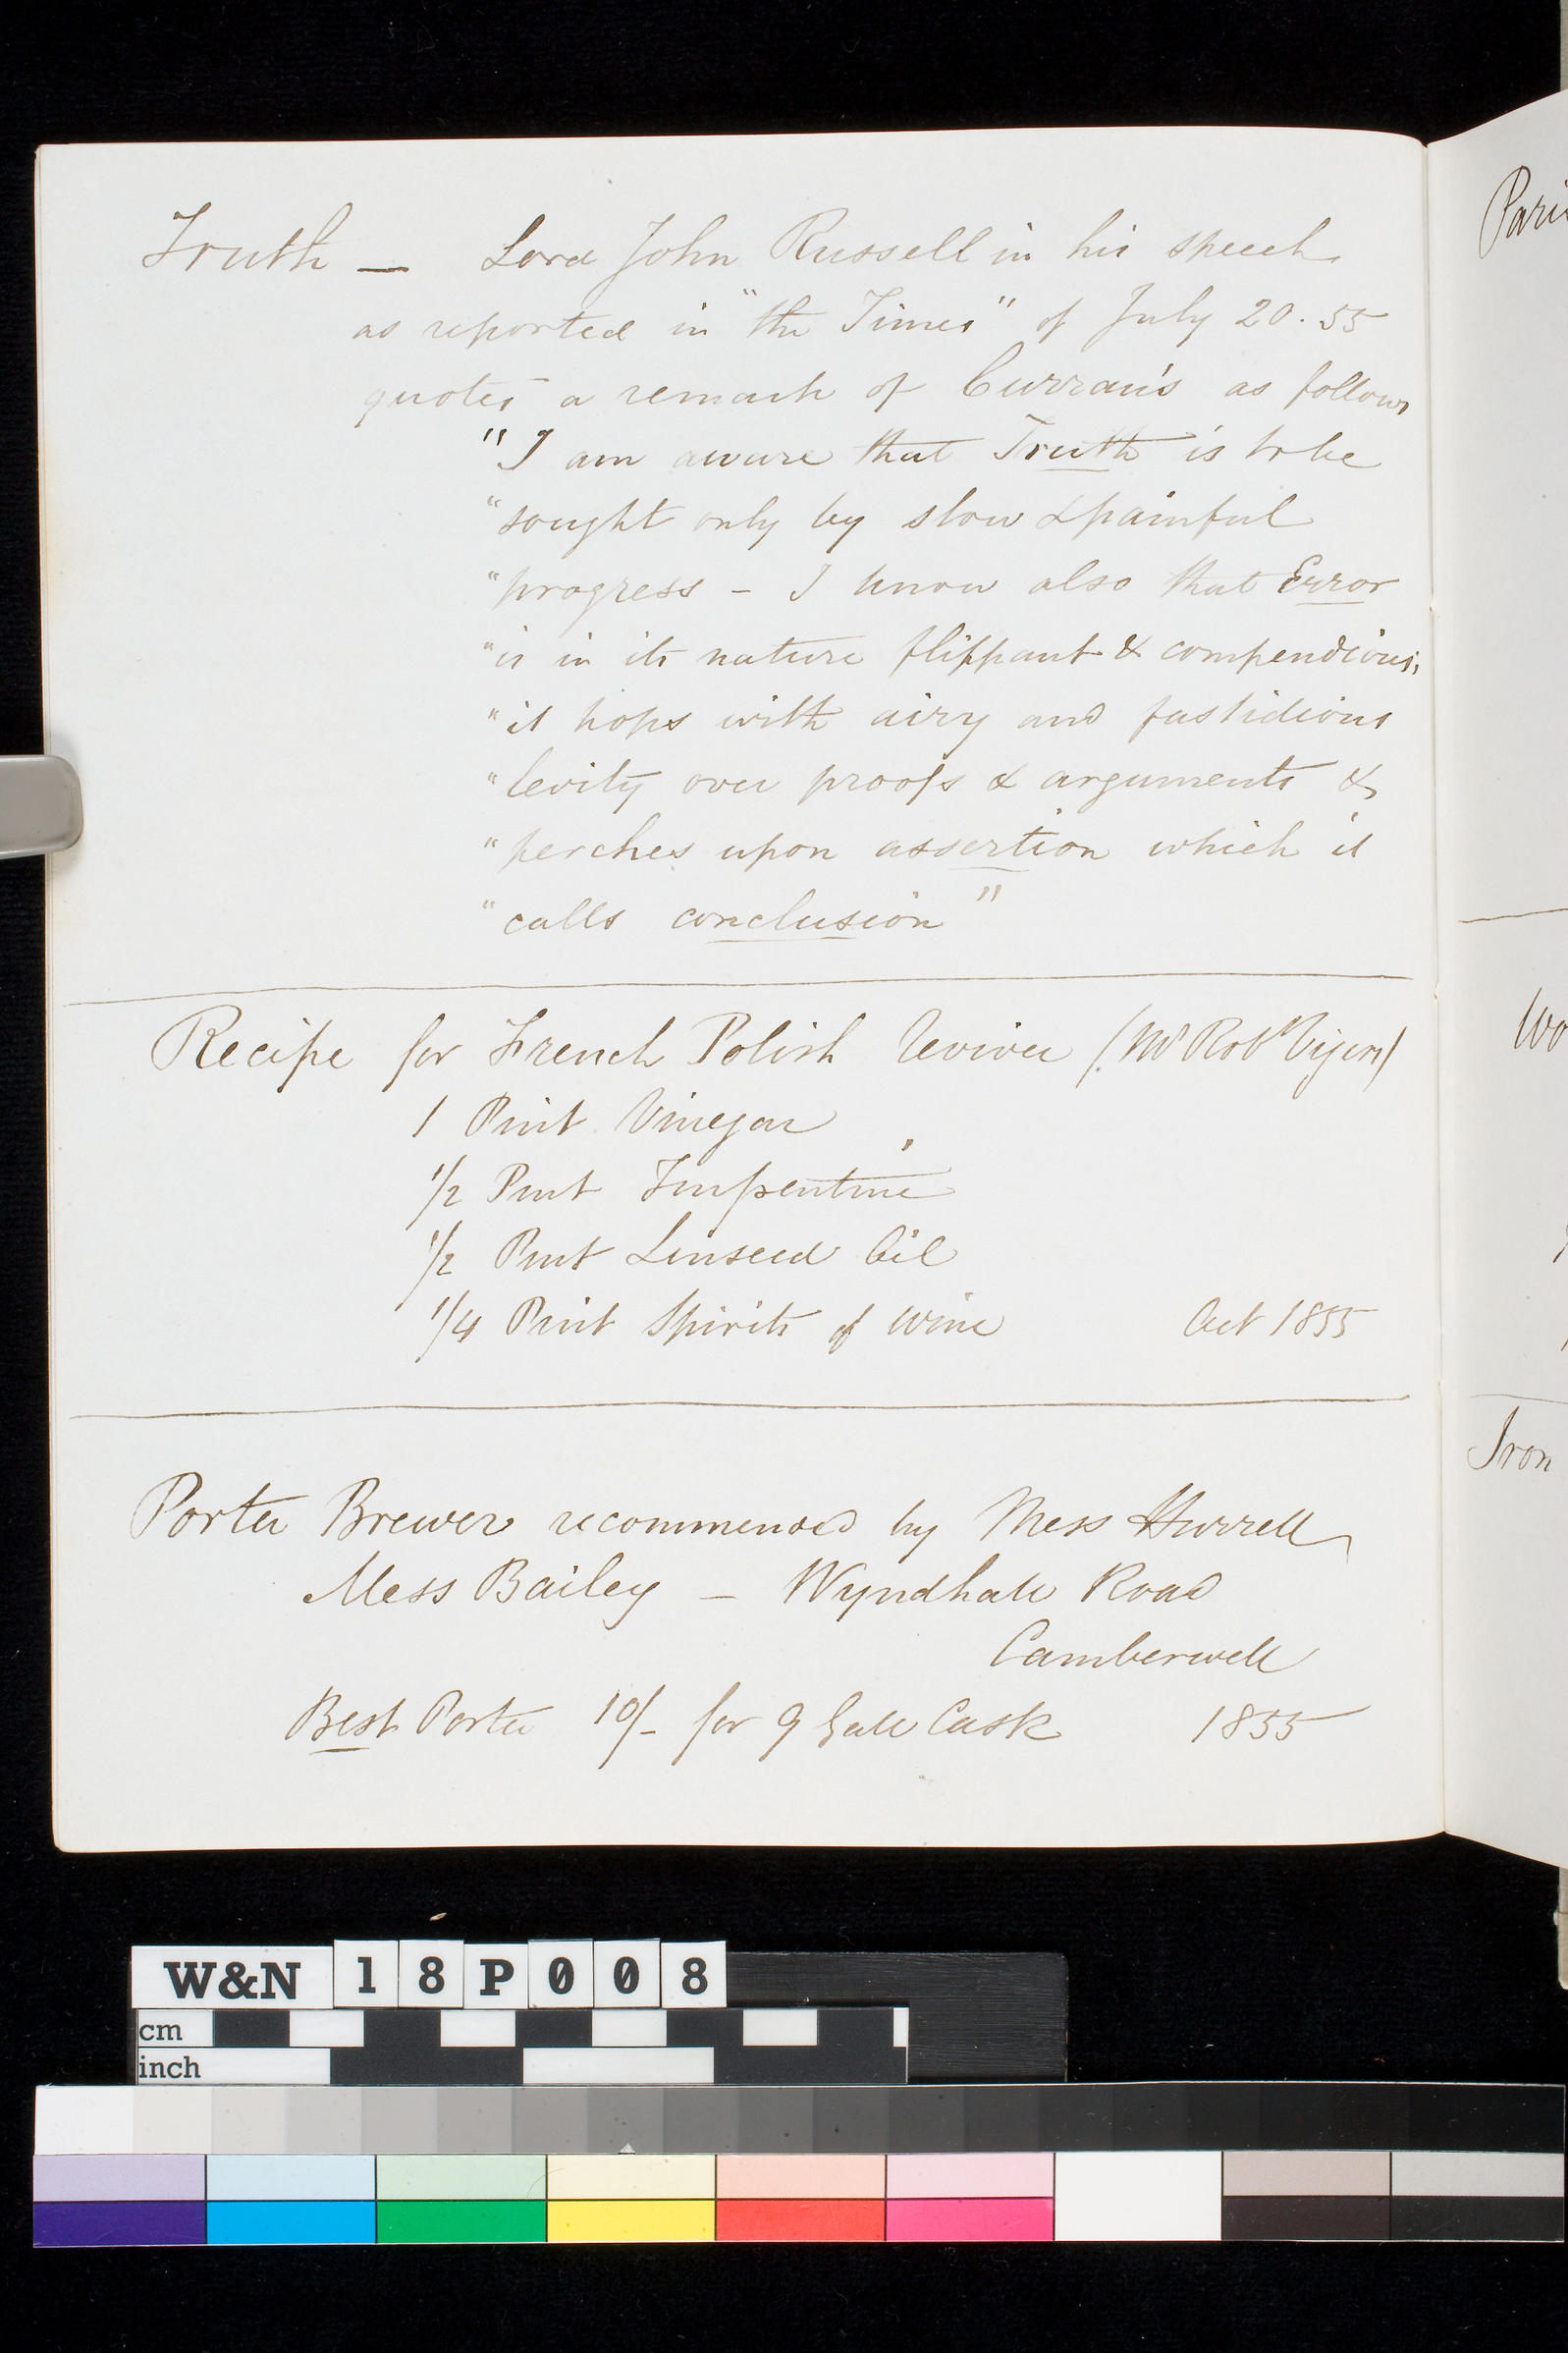 Truth — Lord John Russell in his speech
as reported in "the Times" of July 20. 55
quotes a remark of Curran's as follows
"I am aware that Truth is to be
"sought only by slow & painful
"progress – I know also that Error
"is in its nature flippant & compendious,
"it hops with airy and fastidious
"levity over proofs & arguments &
"perches upon assertion which it
"calls conclusion"
Recipe for French Polish Reviver (Mr Robt Vigers)
1 Pint Vinegar
1/2 Pint Turpentine
1/2 Pint Linseed Oil
1/4 Pint Spirits of Wine Oct 1855
Porter Brewer recommended by Mess Hurrell
Mess Bailey – Wyndham Road
Camberwell
Best Porter 10/- for 9 Gall Cask 1855
Pari
Wo
Iron
W&N 18P008
cm
inch